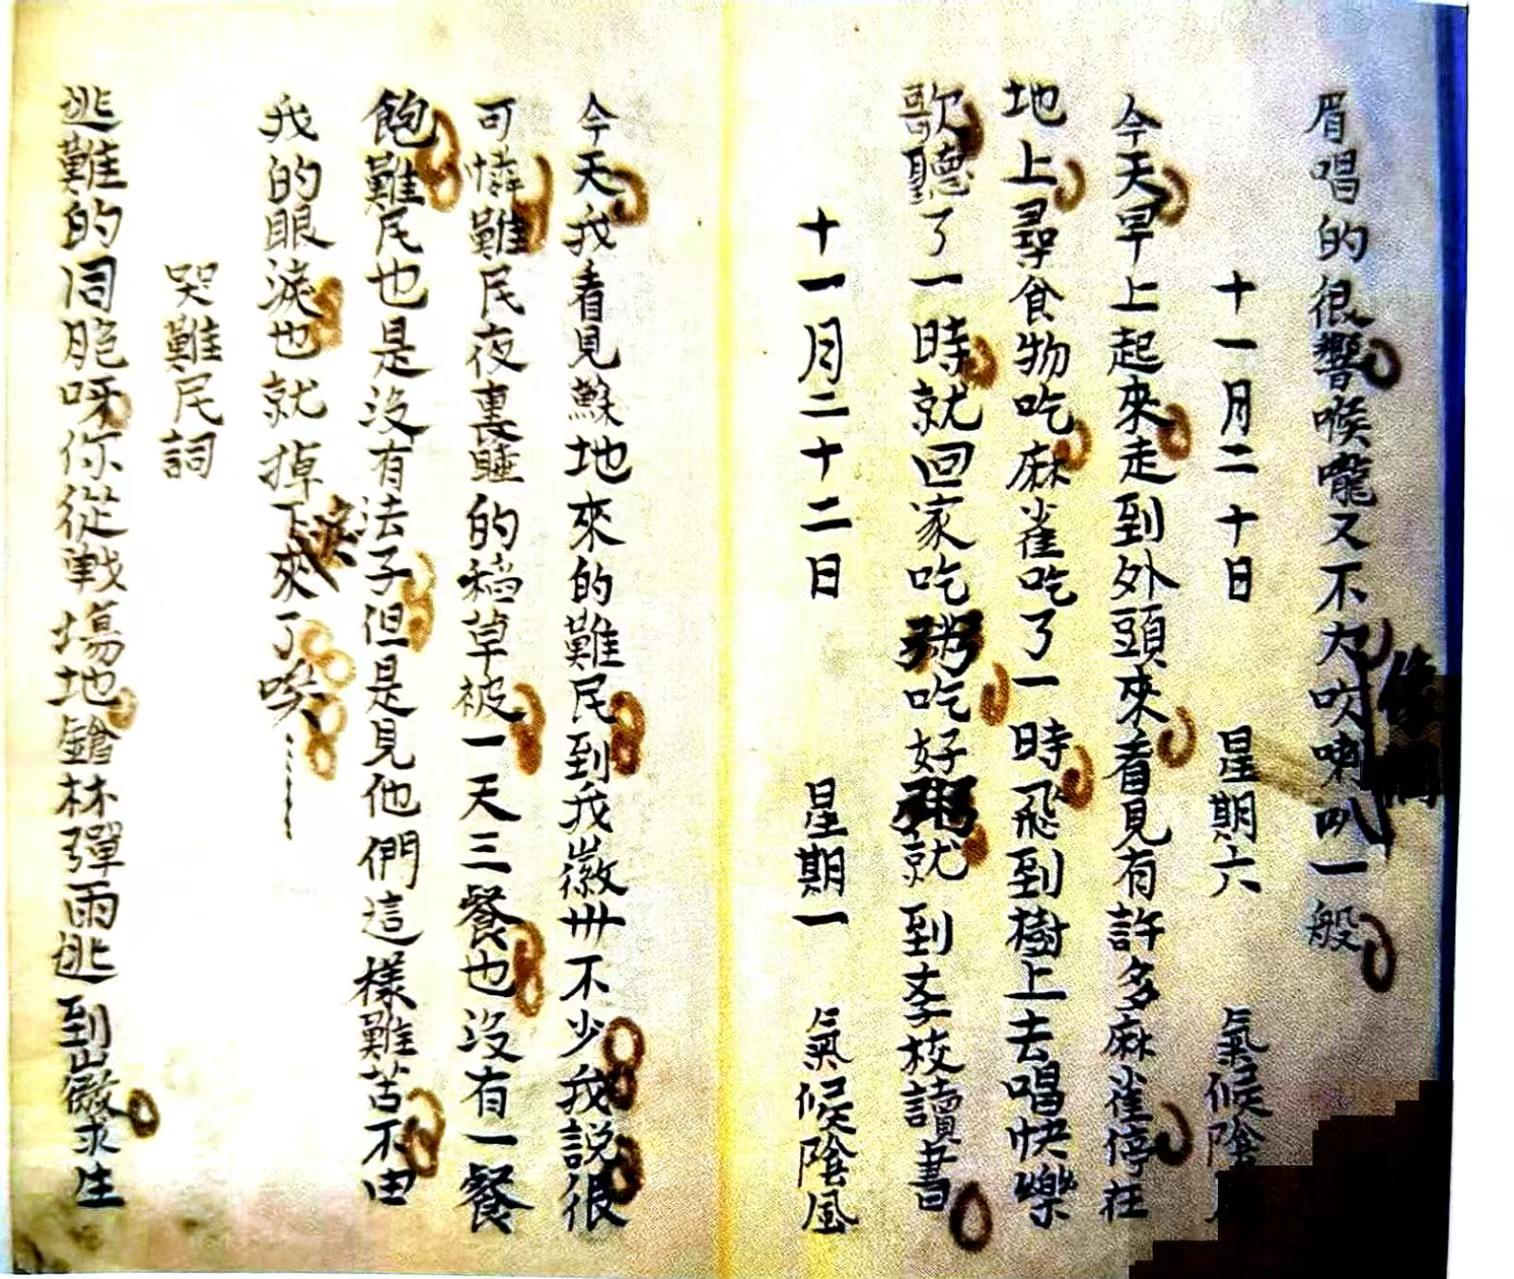 眉唱的很響喉嚨又不大像個吹喇叭一般
十一月二十日 星期六 氣候陰
今天早上起來走到外頭來看見有許多麻雀停在
地上尋食物吃麻雀吃了一時飛到樹上去唱快樂
歌聽了一時就回家吃粥吃好粥就到李校讀書
十一月二十二日 星期一 氣候陰風
今天我看見蘇地來的難民到我徽州不少我說很
可憐難民夜裏睡的稻草被一天三餐也沒有一餐
飽難民也是沒有法子但是見他們這樣難苦不由
我的眼淚也就掉下來了唉
哭難民詞
逃難的同胞呀你從戰場地鎗林彈雨逃到徽求生